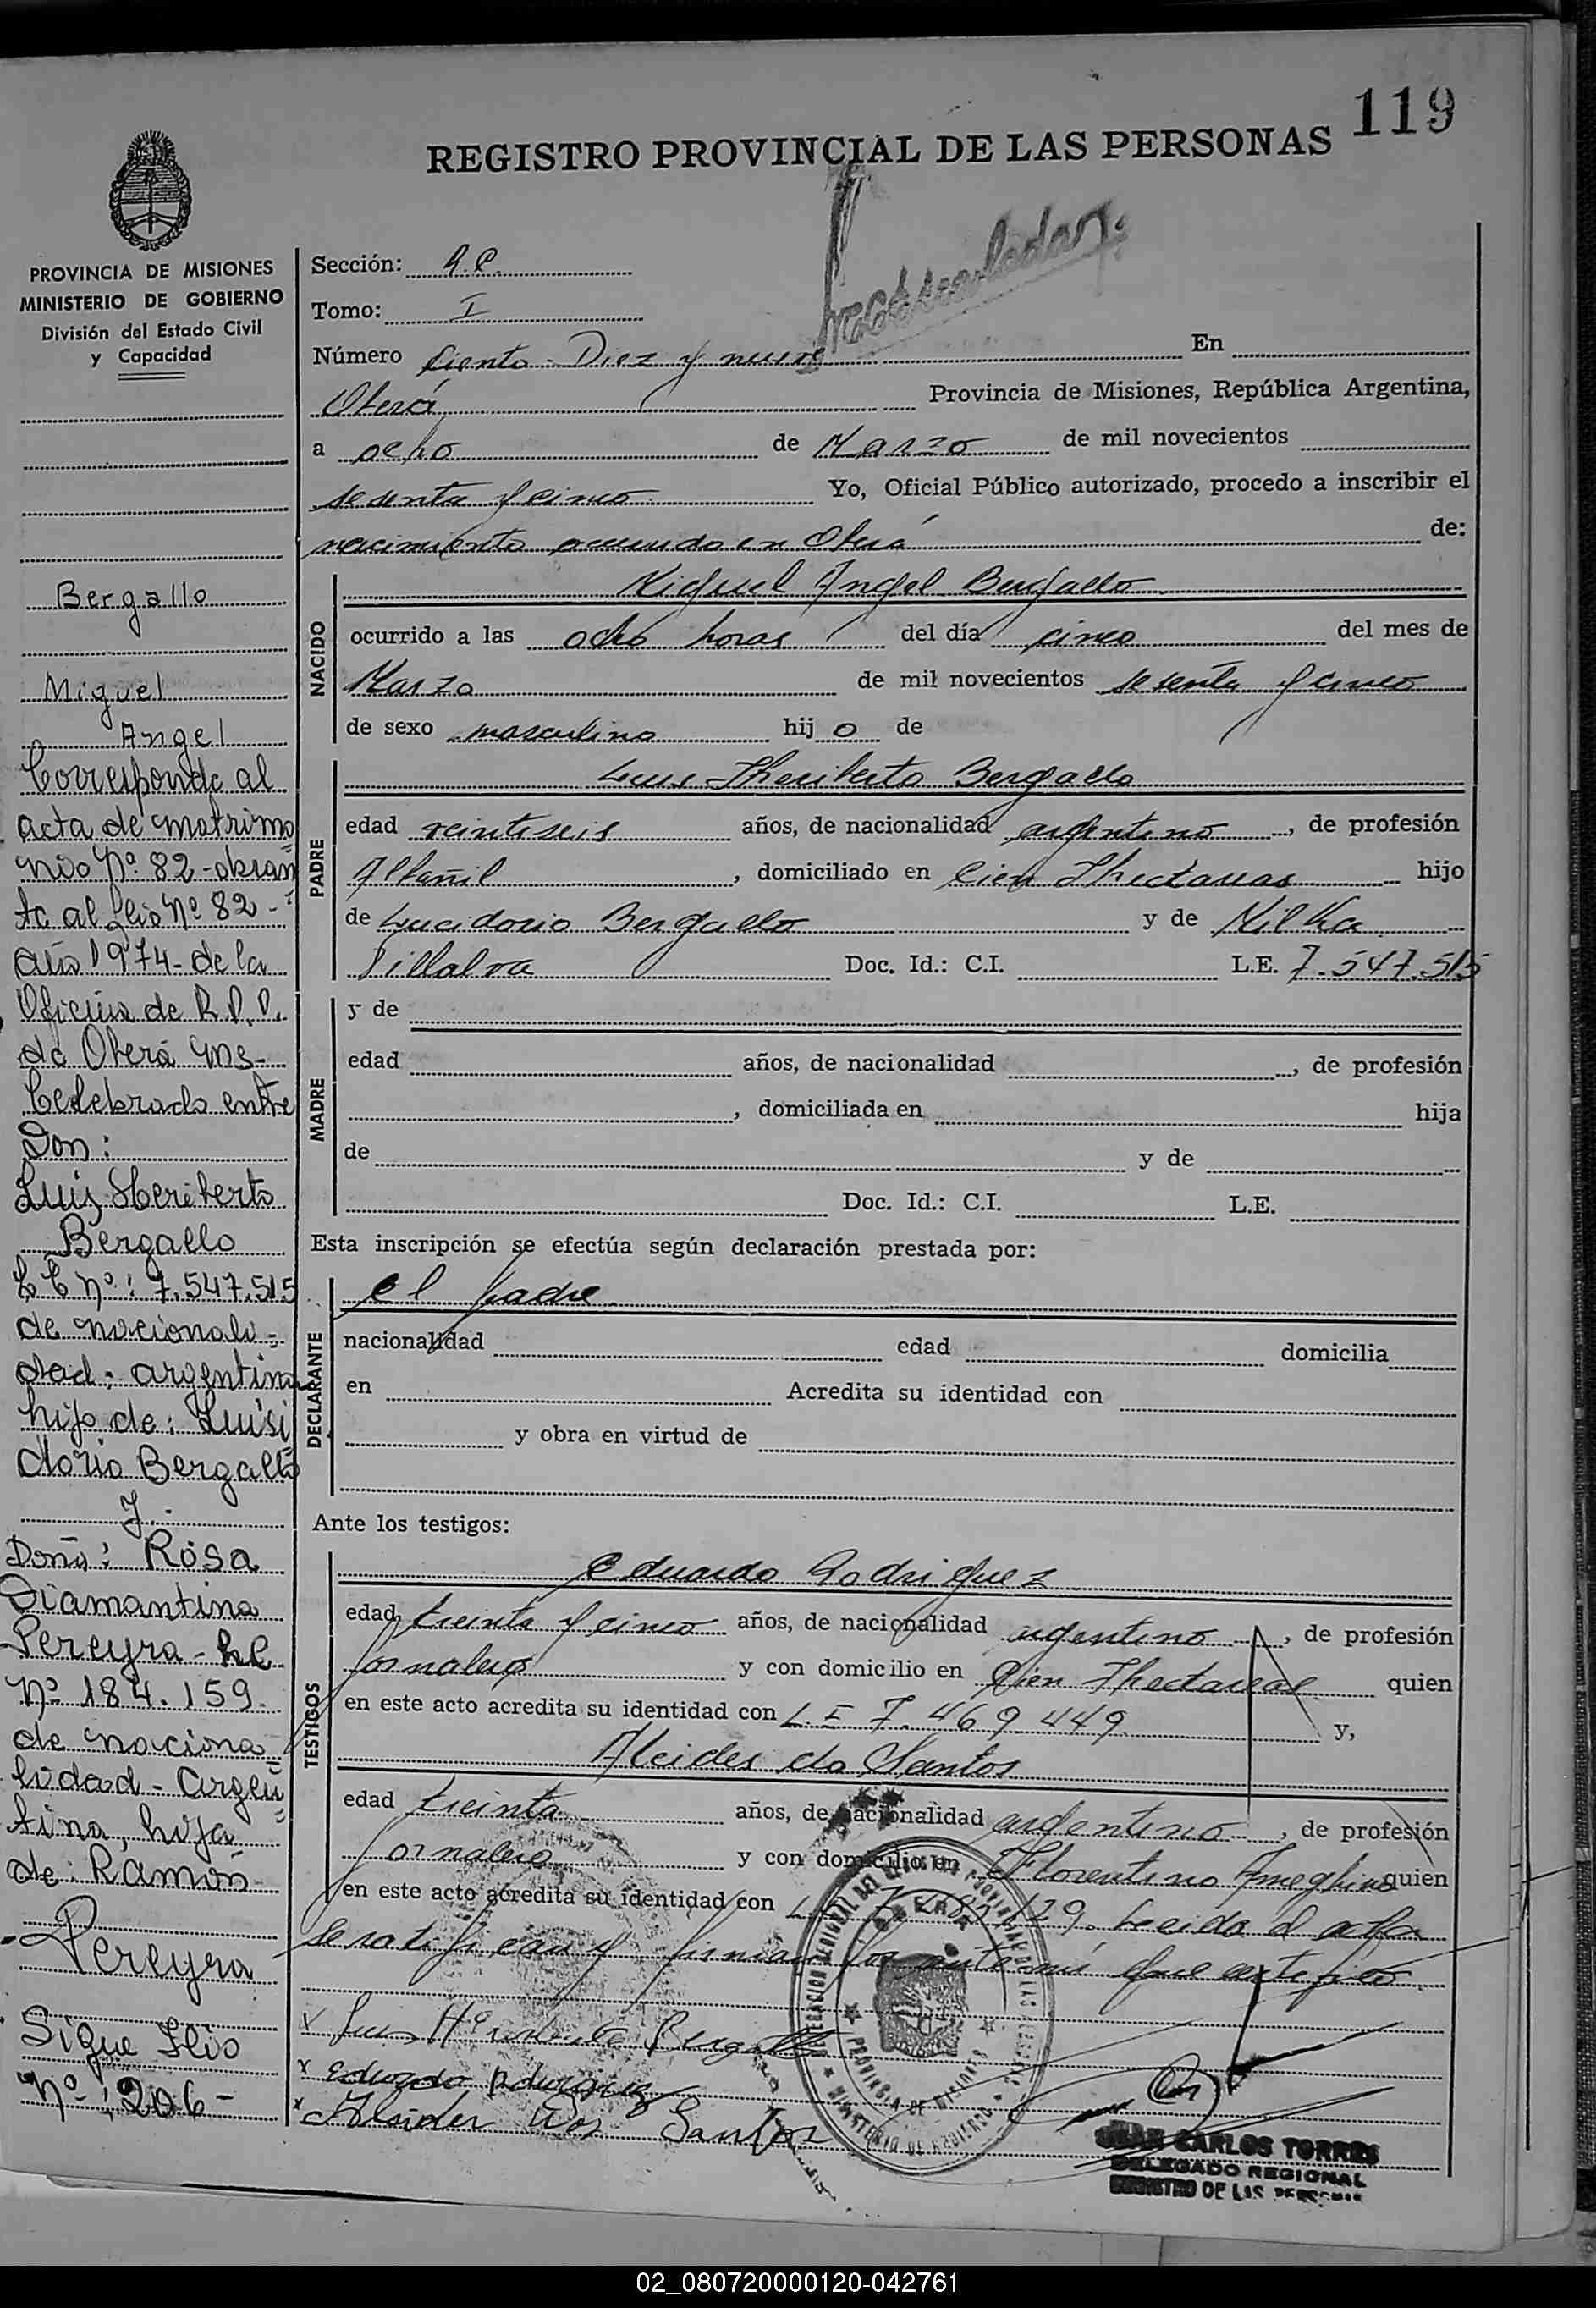 119
REGISTRO PROVINCIAL DE LAS PERSONAS
PROVINCIA DE MISIONES
MINISTERIO DE GOBIERNO
División del Estado Civil
y Capacidad
Bergallo
Miguel
Angel
Corresponde al
acta de matrimo
nio Nº 82 - obran
te al flio Nº 82 -
año 1974 - de la
Oficina de R.P.P.
de Oberá Mns-
Celebrado entre
Don:
Luis Heriberto
Bergallo
Nº: 7.547.515
de nacionali-
dad: argentina
hijo de: Luisi
dorio Bergallo
y.-
Doña: Rosa
Diamantina
Pereyra -
Nº 184.159.
de naciona
lidad - Argen
tina, hija
de: Ramón
Pereyra
Sigue flio
Nº: 206 -
Sección:
Tomo: I
Número Ciento Diez y nueve En
Oberá Provincia de Misiones, República Argentina,
a ocho de Marzo de mil novecientos
sesenta y cinco Yo, Oficial Público autorizado, procedo a inscribir el
nacimiento ocurrido en Oberá de:
NACIDO
Miguel Angel Bergallo
ocurrido a las ocho horas del día cinco del mes de
Marzo de mil novecientos sesenta y cinco
de sexo masculino hij o de
PADRE
Luis Heriberto Bergallo
edad veintiseis años, de nacionalidad argentino, de profesión
Albañil, domiciliado en Cien Hectareas hijo
de Lucidorio Bergallo y de Milka
Villalva Doc. Id.: C.I. L.E. 7.547.515
MADRE
y de
edad años, de nacionalidad , de profesión
, domiciliada en hija
de y de
Doc. Id.: C.I. L.E.
Esta inscripción se efectúa según declaración prestada por:
DECLARANTE
el padre
nacionalidad edad domicilia
en Acredita su identidad con
y obra en virtud de
Ante los testigos:
TESTIGOS
Eduardo Rodriguez
edad treinta y cinco años, de nacionalidad argentino, de profesión
Jornalero y con domicilio en Cien Hectareas quien
en este acto acredita su identidad con L.E 7.469 449 y,
Alcides do Santos
edad treinta años, de nacionalidad argentino, de profesión
Jornalero y con domicilio en Florentino Ameghino quien
en este acto acredita su identidad con 129. Leida el acta
se ratifican y firman por ante mi que certifico
x Luis Heriberto Bergallo
x Eduardo Rodriguez
x Alsider dos Santos
PROVINCIA DE MISIONES
MINISTERIO DE GOBIERNO
JUAN CARLOS TORRES
DELEGADO REGIONAL
REGISTRO DE LAS PERSONAS
02_080720000120-042761